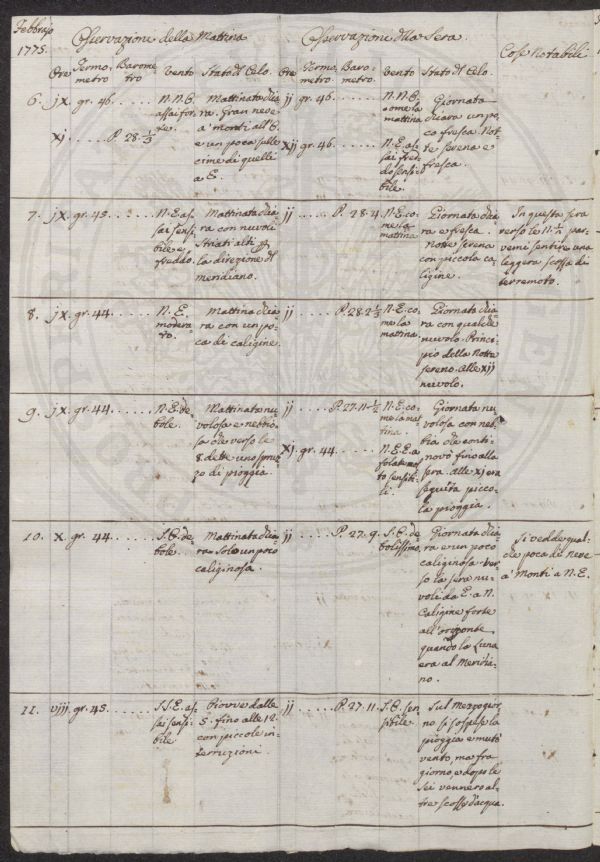 Febbrajo
1775.
Osservazioni della Mattina
Osservazioni della Sera.
Cose Notabili
Ore
Termo-
metro
Barome
tro
Vento
Stato del Celo.
Ore
Termo-
metro.
Baro-
metro.
Vento
Stato del Celo.
6. jx. gr. 46.
N.N.E.
assai for-
te.
Mattinata chia
ra. Gran neve
a' monti all' E.
e un poca sulle
cime di quelli
a S.
xj. P. 28.⅓
jj gr. 46.
N.N.E.
come la
mattina
xij gr. 46.
N.E. as-
sai fred
do sensi-
bile.
Giornata
chiara un po-
co fresca. Not-
te serena e
fresca.
7. jx. gr. 45.
N.E. as-
sai sensi
bile e
freddo.
Mattinata chia
ra con nuvoli
striati alti
la direzione del
meridiano.
jj P. 28.4.
N.E. co-
me la
mattina
Giornata chia
ra e fresca.
notte serena
con piccola ca-
ligine.
In questa sera
verso le N.½ par-
vemi sentire una
leggera scossa di
terremoto.
8. jx. gr. 44.
N.E.
modera-
to.
Mattina chia-
ra con un po-
ca di caligine.
jj P. 28.2⅓
N.E. co-
me la
mattina.
Giornata chia-
ra con qualche
nuvolo. Princi-
pio della Notte
sereno. alle xij
nuvolo.
9. jx. gr. 44.
N.E. de-
bole.
Mattinata nu
volosa e nebbio-
sa che verso le
8. dette uno spruz
zo di pioggia.
jj P. 27.11.½
N.E. co-
me la mat
tina.
xj. gr. 44.
N.E.E.
to sensibi-
li.
Giornata nu
volosa con neb-
bia che conti-
novò fino alla
sera. alle xj era
seguita picco-
la pioggia.
10. x. gr. 44.
S.E. de
bole.
Mattinata chia-
ra solo un poco
caliginosa.
jj P. 27.9.
S.E. de
bolissimo.
Giornata chia
ra e un poco
caliginosa. Ver-
so la sera nu-
voli da E. a N.
Caligine forte
all' orizonte
quando la Luna
era al Meridia-
no.
Si vedde qual-
che poca di neve
a' Monti a N.E.
11. viij. gr. 45.
S.S.E. as-
sai sensi-
bile
Piovve dalle
5. fino alle 12.
con piccole in-
terruzioni.
jj P. 27.11.
S.E. sen
sibile.
Sul Mezzogior
no si sospese la
pioggia e mutò
vento, ma fra
giorno, e dopo le
sei vennero al-
tre scosse d'acqua.